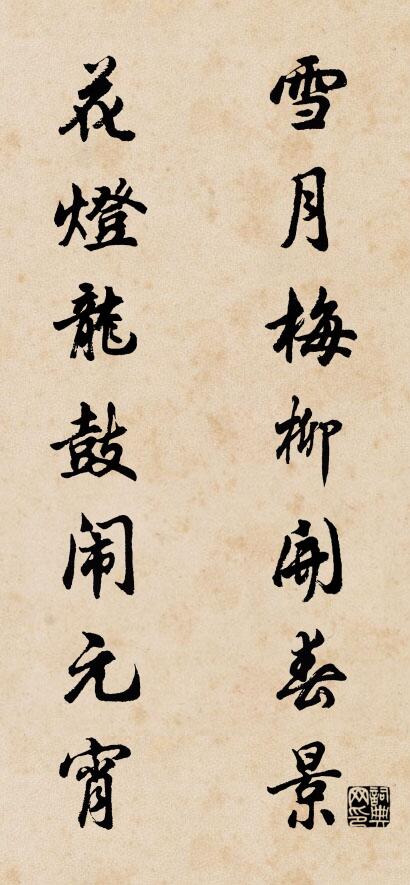 雪月梅柳開春景
花燈龍鼓闹元宵
詞典网印